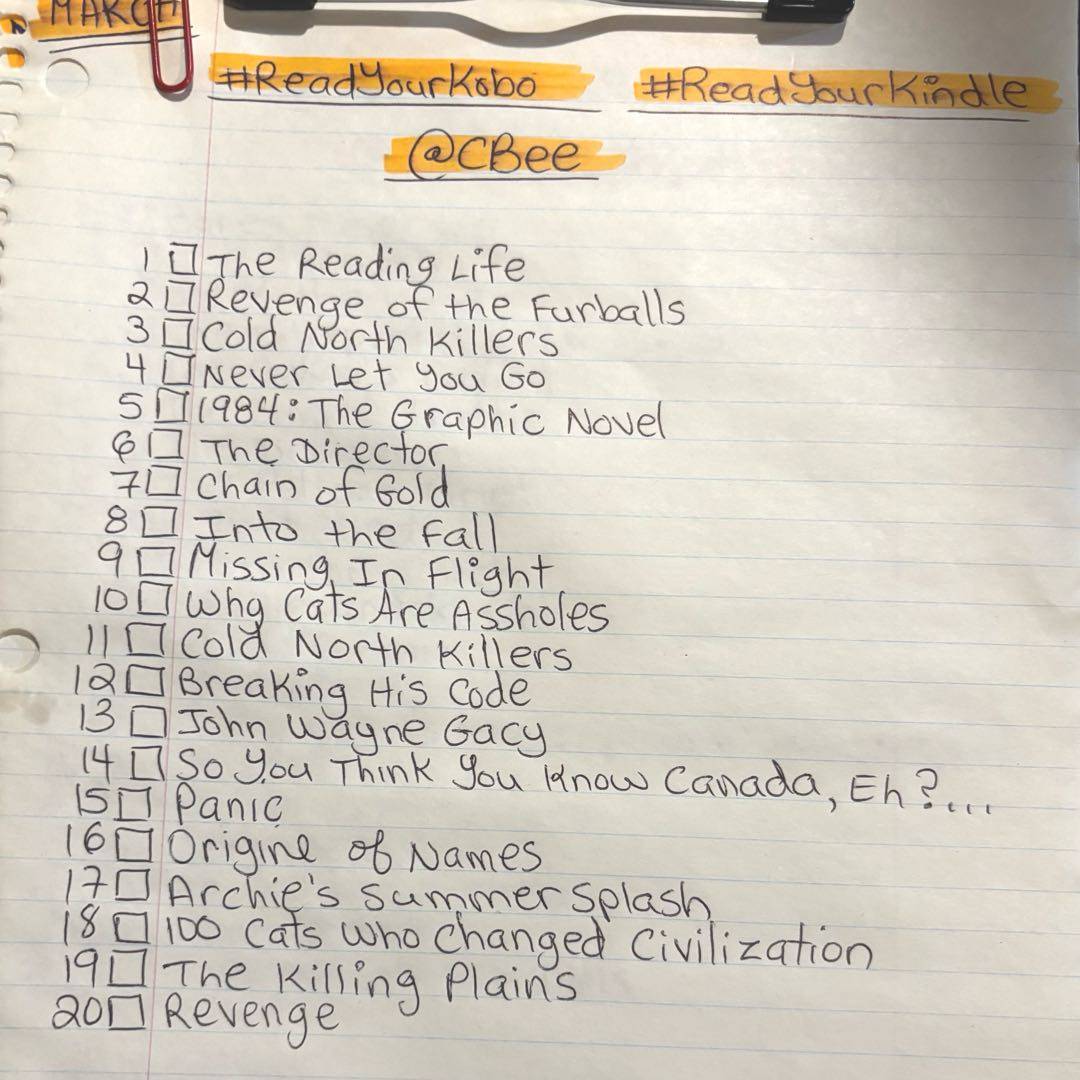 MARCH
#ReadYourKobo #ReadYourKindle
@CBee
1 The Reading Life
2 Revenge of the Furballs
3 Cold North Killers
4 Never Let You Go
5 1984: The Graphic Novel
6 The Director
7 Chain of Gold
8 Into the Fall
9 Missing In Flight
10 Why Cats Are Assholes
11 Cold North Killers
12 Breaking His Code
13 John Wayne Gacy
14 So You Think You Know Canada, Eh?...
15 Panic
16 Origine of Names
17 Archie's Summer Splash
18 100 Cats Who Changed Civilization
19 The Killing Plains
20 Revenge